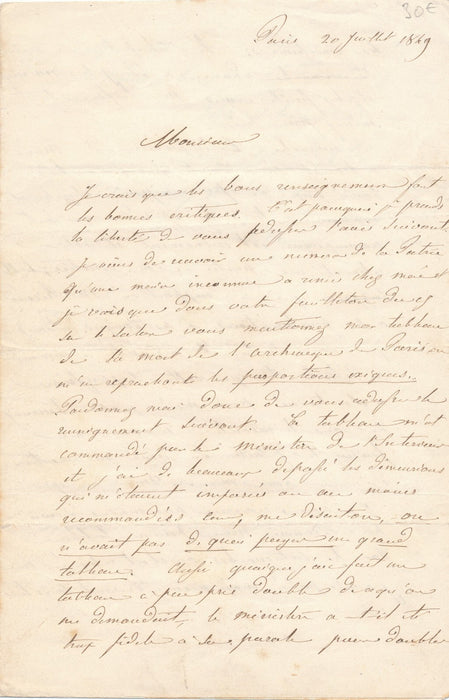 30€
Paris 20 Juillet 1849
Monsieur
Je crois que les bons renseignemens font
les bonnes critiques. C'est pourquoi je prends
la liberté de vous adresser l'avis suivant.
Je viens de recevoir un numero de la Patrie
qu'une main inconnue a remis chez moi et
je vois que dans votre feuilleton du
sur le salon vous mentionnez mon tableau
de la mort de l'archevêque de Paris en
m'en reprochant les proportions exigues.
Pardonnez moi donc de vous adresser le
renseignement suivant. Ce tableau m'est
commandé par le ministre de l'Interieur
et j'ai de beaucoup depassé les dimensions
qui m'étaient imposés ou au moins
recommandées car, me disait on, on
n'avait pas de quoi payer un grand
tableau. Aussi quoique j'aie fait un
tableau à peu près double de ce qu'on
me demandait, le ministre a-t-il été
trop fidele à sa parole pour doubler